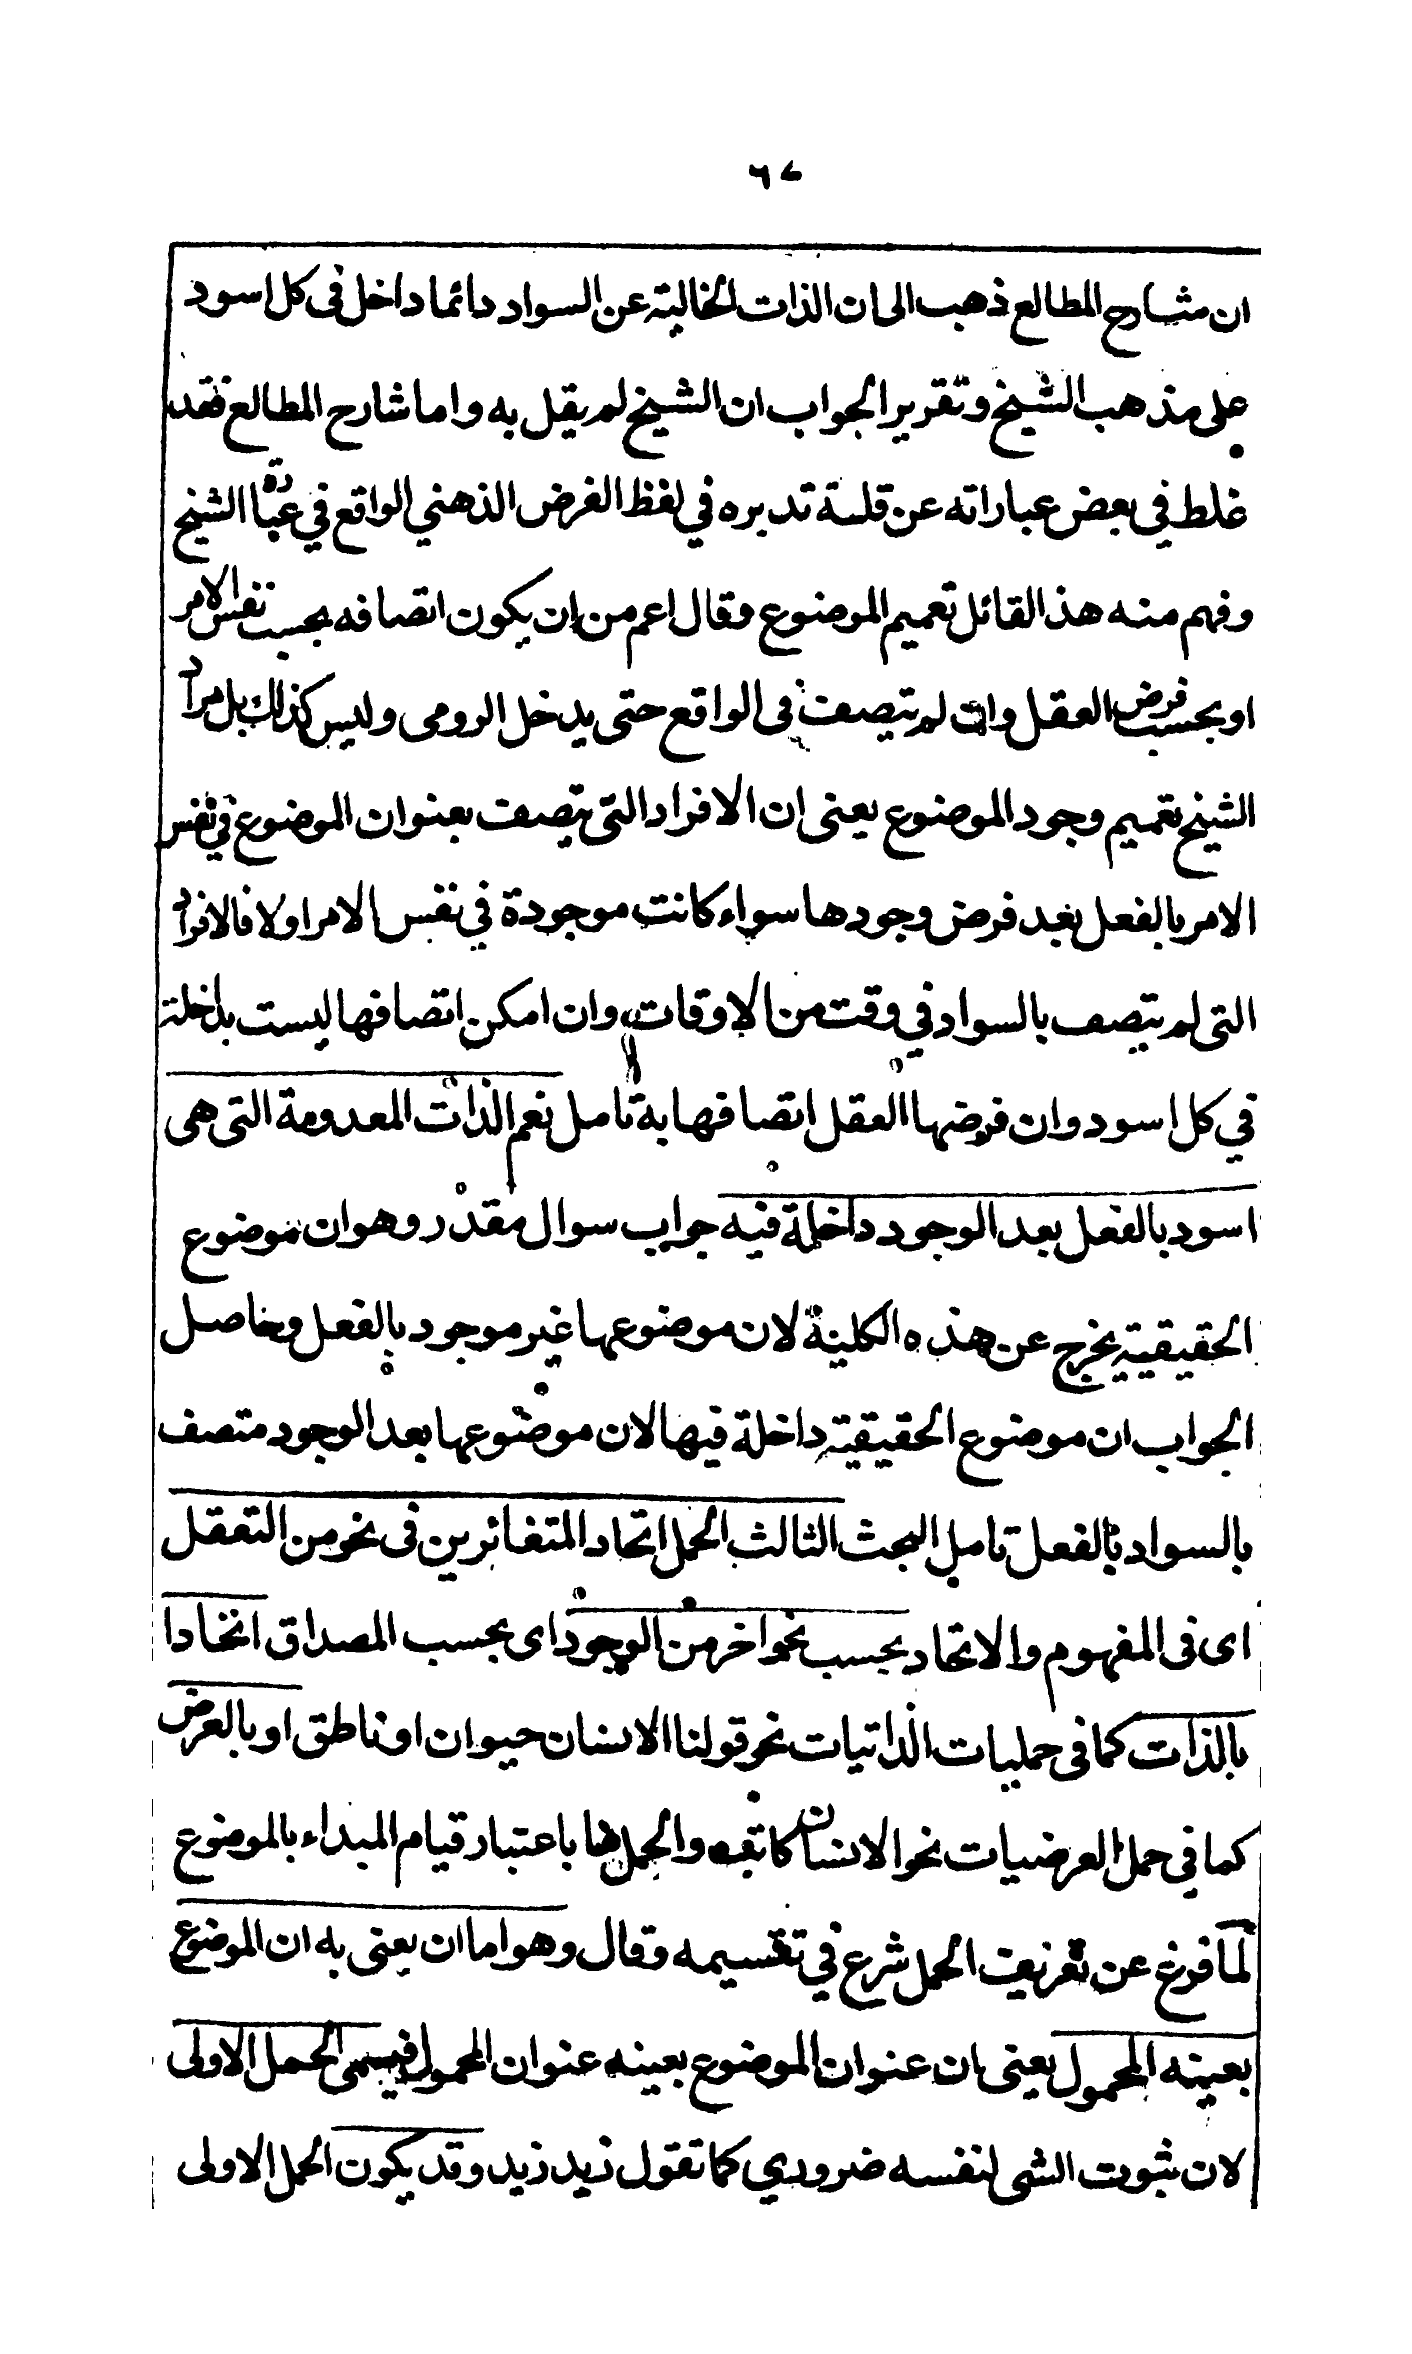 ٦٧
ان شارح المطالع ذهب الى ان الذات الخالية عن السواد دائما داخل فى كل اسود
على مذهب الشيخ وتقرير الجواب ان الشيخ لم يقل به واما شارح المطالع فقد
غلط في بعض عباراته عن قلة تدبره في لفظ الفرض الذهني الواقع في عبارة الشيخ
وفهم منه هذا القائل تعميم الموضوع وقال اعم من ان يكون اتصافه بحسب نفس الامر
او بحسب فرض العقل وان لم تتصف فى الواقع حتى يدخل الرومى وليس كذلك بل مراد
الشيخ تعميم وجود الموضوع يعنى ان الافراد التى تتصف بعنوان الموضوع في نفس
الامر بالفعل بعد فرض وجودها سواء كانت موجودة في نفس الامر اولا فالافراد
التى لم تتصف بالسواد في وقت من الاوقات وان امكن اتصافها ليست بداخلة
في كل اسود وان فرضها العقل اتصافها به تامل نعم الذات المعدومة التى هى
اسود بالفعل بعد الوجود داخلة فيه جواب سوال مقدر وهو ان موضوع
الحقيقية يخرج عن هذه الكلية لان موضوعها غير موجود بالفعل وحاصل
الجواب ان موضوع الحقيقية داخلة فيها لان موضوعها بعد الوجود متصف
بالسواد بالفعل تامل البحث الثالث الحمل اتحاد المتغائرين فى نحو من التعقل
اى فى المفهوم والاتحاد بحسب نحو اخر من الوجود اى بحسب المصداق اتحادا
بالذات كما فى حمليات الذاتيات نحو قولنا الانسان حيوان او ناطق او بالعرض
كما في حمل العرضيات نحو الانسان كاتب والحمل ها باعتبار قيام المبداء بالموضوع
لما فرغ عن تعريف الحمل شرع في تقسيمه وقال وهو اما ان يعنى به ان الموضوع
بعينه المحمول يعنى ان عنوان الموضوع بعينه عنوان المحمول فيسمى الحمل الاولى
لان ثبوت الشى لنفسه ضروري كما تقول زيد زيد وقد يكون الحمل الاولى